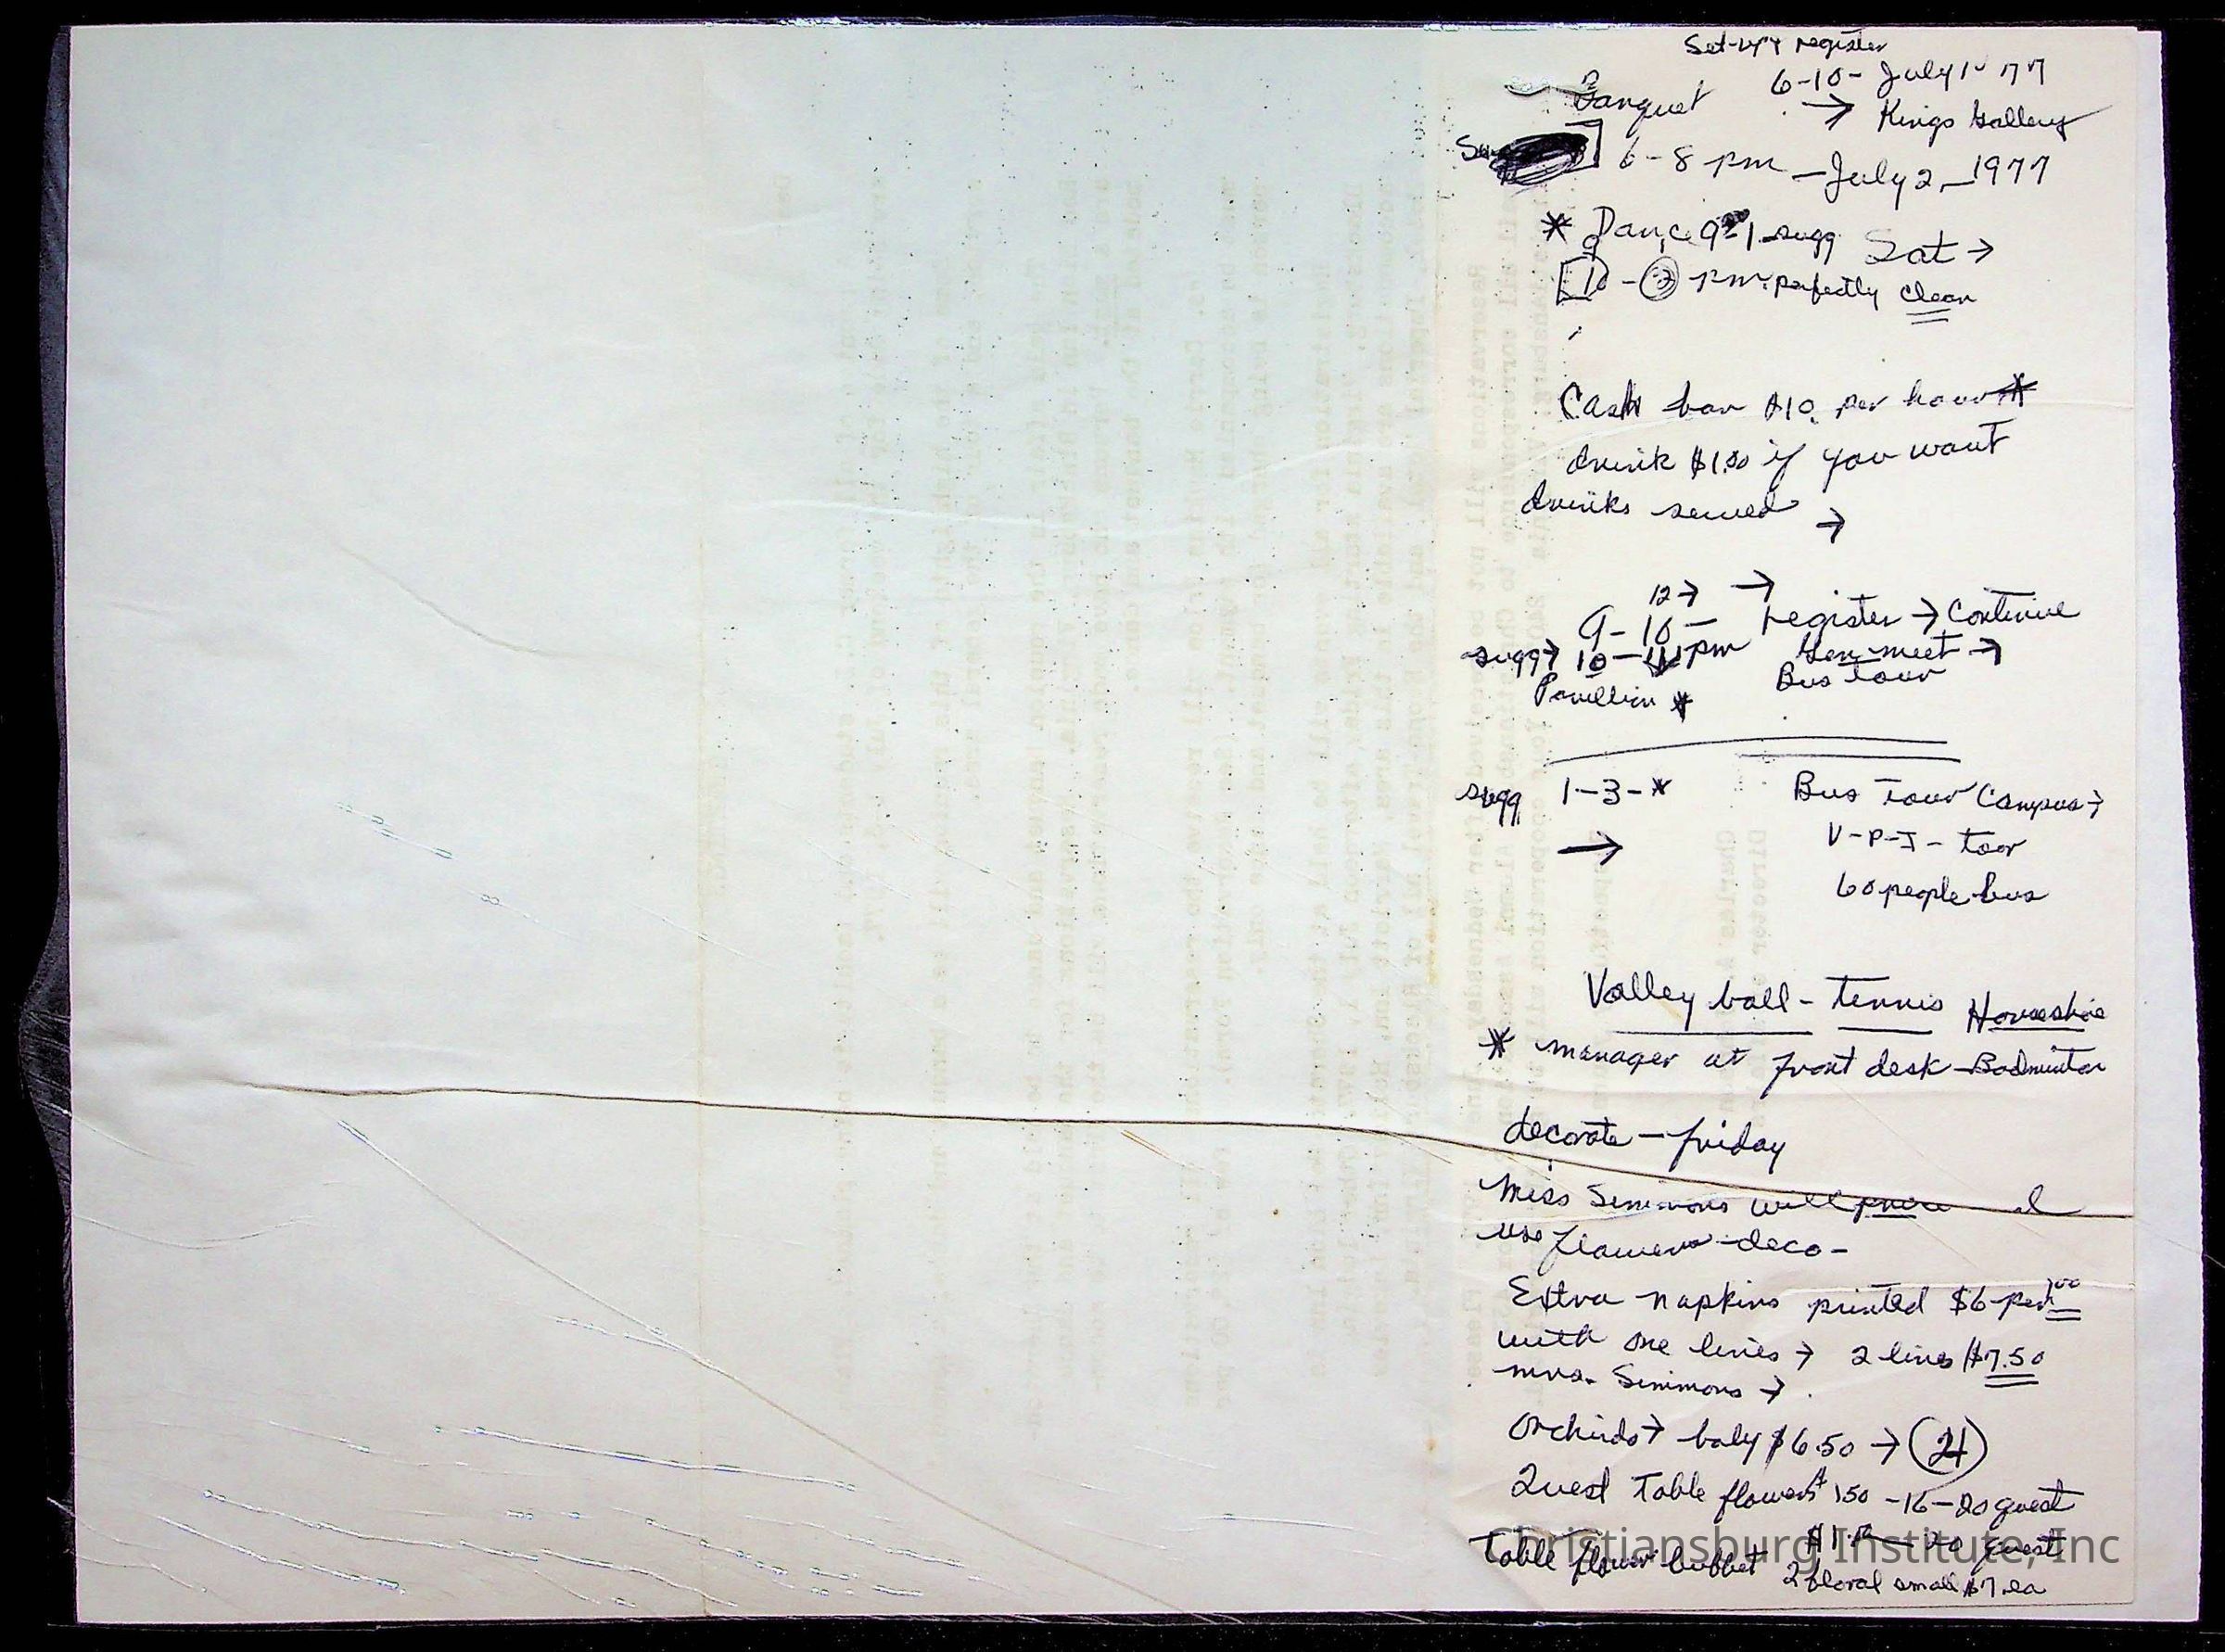 Set-up & register
6-10- July 1- 77
Banquet → Kings Gallery
6-8 pm - July 2, 1977
* Dance 9-1 sugg Sat →
10 - pm. perfectly clean
Cash bar $10. per hour *
drink $1.30 if you want
drinks served →
12 → →
9-10 - register → Continue
sugg → 10 - pm Gen. meet →
Pavillion * Bus tour
sugg 1-3-* Bus tour Campus →
→ V-P-I- tour
60 people bus
Valley ball - tennis Horseshoe
* manager at front desk - Badminton
decorate - friday
Miss Simmons will
use flowers - deco -
Extra napkins printed $6 - per 100
with one lines → 2 lines $7.50
mrs. Simmons →
Orchids → baby $6.50 →
Guest Table flowers 150 - 16 - 20 guest
20 guest
Table flower buffet 2 floral small $7. ea
Christiansburg Institute, Inc